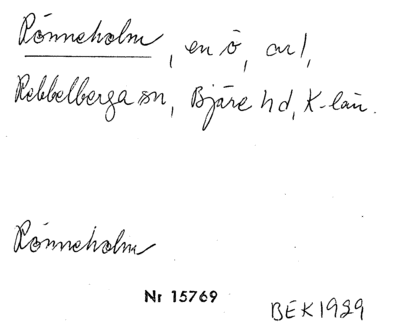 Rönneholm, en ö, arl,
Rebbelberga sn, Bjäre hd, K-län.
Rönneholm
Nr 15769
BEK1929